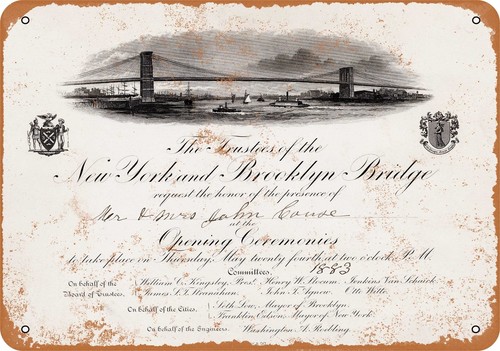 The Trustees of the
New York and Brooklyn Bridge
request the honor of the presence of
Mr & Mrs John
at the
Opening Ceremonies
to take place on Thursday, May twenty fourth at two o'clock, P. M.
1883
Committees.
On behalf of the Board of Trustees.
William C. Kingsley, Pres. Henry W. Slocum. Jenkins Van Schaick.
James S. T. Stranahan. John T. Agnew. Otto Witte.
On behalf of the Cities.
Seth Low, Mayor of Brooklyn.
Franklin Edson, Mayor of New York.
On behalf of the Engineers.
Washington A. Roebling.